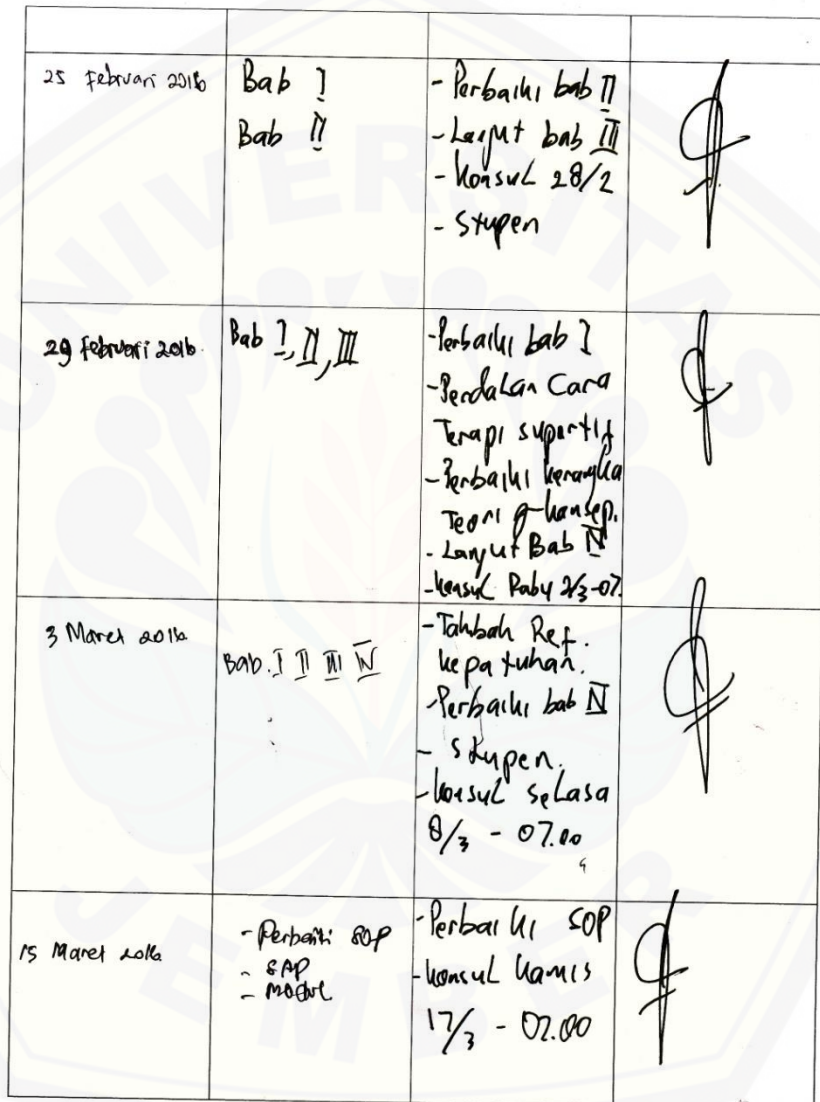 UNIVERSITAS
JEMBER
25 Februari 2016
Bab I
Bab II
- Perbaiki bab II
- Lanjut bab III
- Konsul 28/2
- Stupen
29 Februari 2016
Bab I, II, III
- Perbaiki bab I
- Perdalan Cara
Terapi suportif
- Perbaiki kerangka
Teori & konsep.
- Lanjut Bab IV
- Konsul Rabu 2/3-07.
3 Maret 2016
Bab. I II III IV
- Tambah Ref.
kepatuhan.
- Perbaiki bab IV
- Stupen.
- Konsul Selasa
8/3 - 07.00
15 Maret 2016
- Perbaiki SOP
- SAP
- Modul
- Perbaiki SOP
- Konsul Kamis
17/3 - 07.00